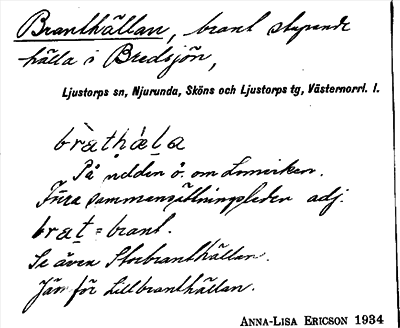 Branthällan, brant stupande
hälla i Bredsjön,
Ljustorps sn, Njurunda, Sköns och Ljustorps tg, Västernorrl. l.
bràthä́la
På udden ö. om Lomviken.
Förra sammansättningsleden adj.
brat = brant.
Se även Storbranthällan.
Jämför Lillbranthällan.
ANNA-LISA ERICSON 1934